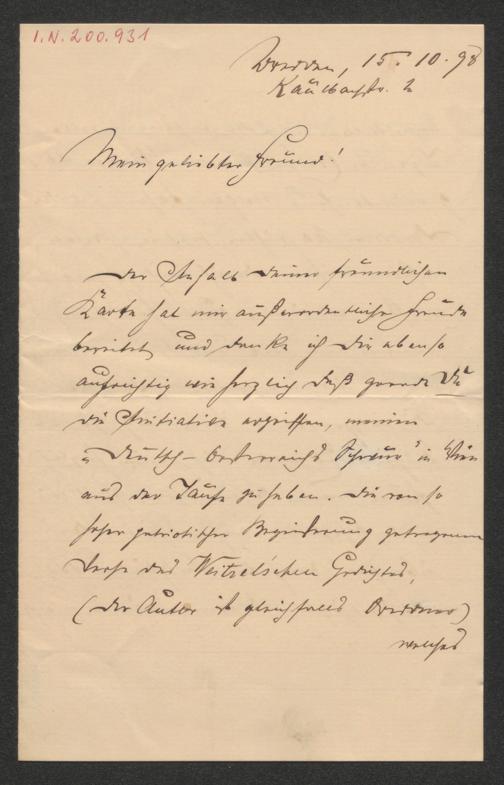 I.N. 200.931
Dresden, 15. 10. 98
Kaulbachstr. 2
Mein geliebter Freund!
Der Inhalt Deiner freundlichen
Karte hat mir außerordentliche Freude
bereitet, und danke ich Dir ebenso
aufrichtig wie herzlich daß gerade Du
die Initiative ergriffen, meinen
„Deutsch-Oesterreichs Schwur" in Wien
aus der Taufe zu heben. Die von so
hoher patriotischer Begeisterung getragenen
Verse des Weitzel'schen Gedichtes,
(der Autor ist gleichfalls Dresdner)
welches